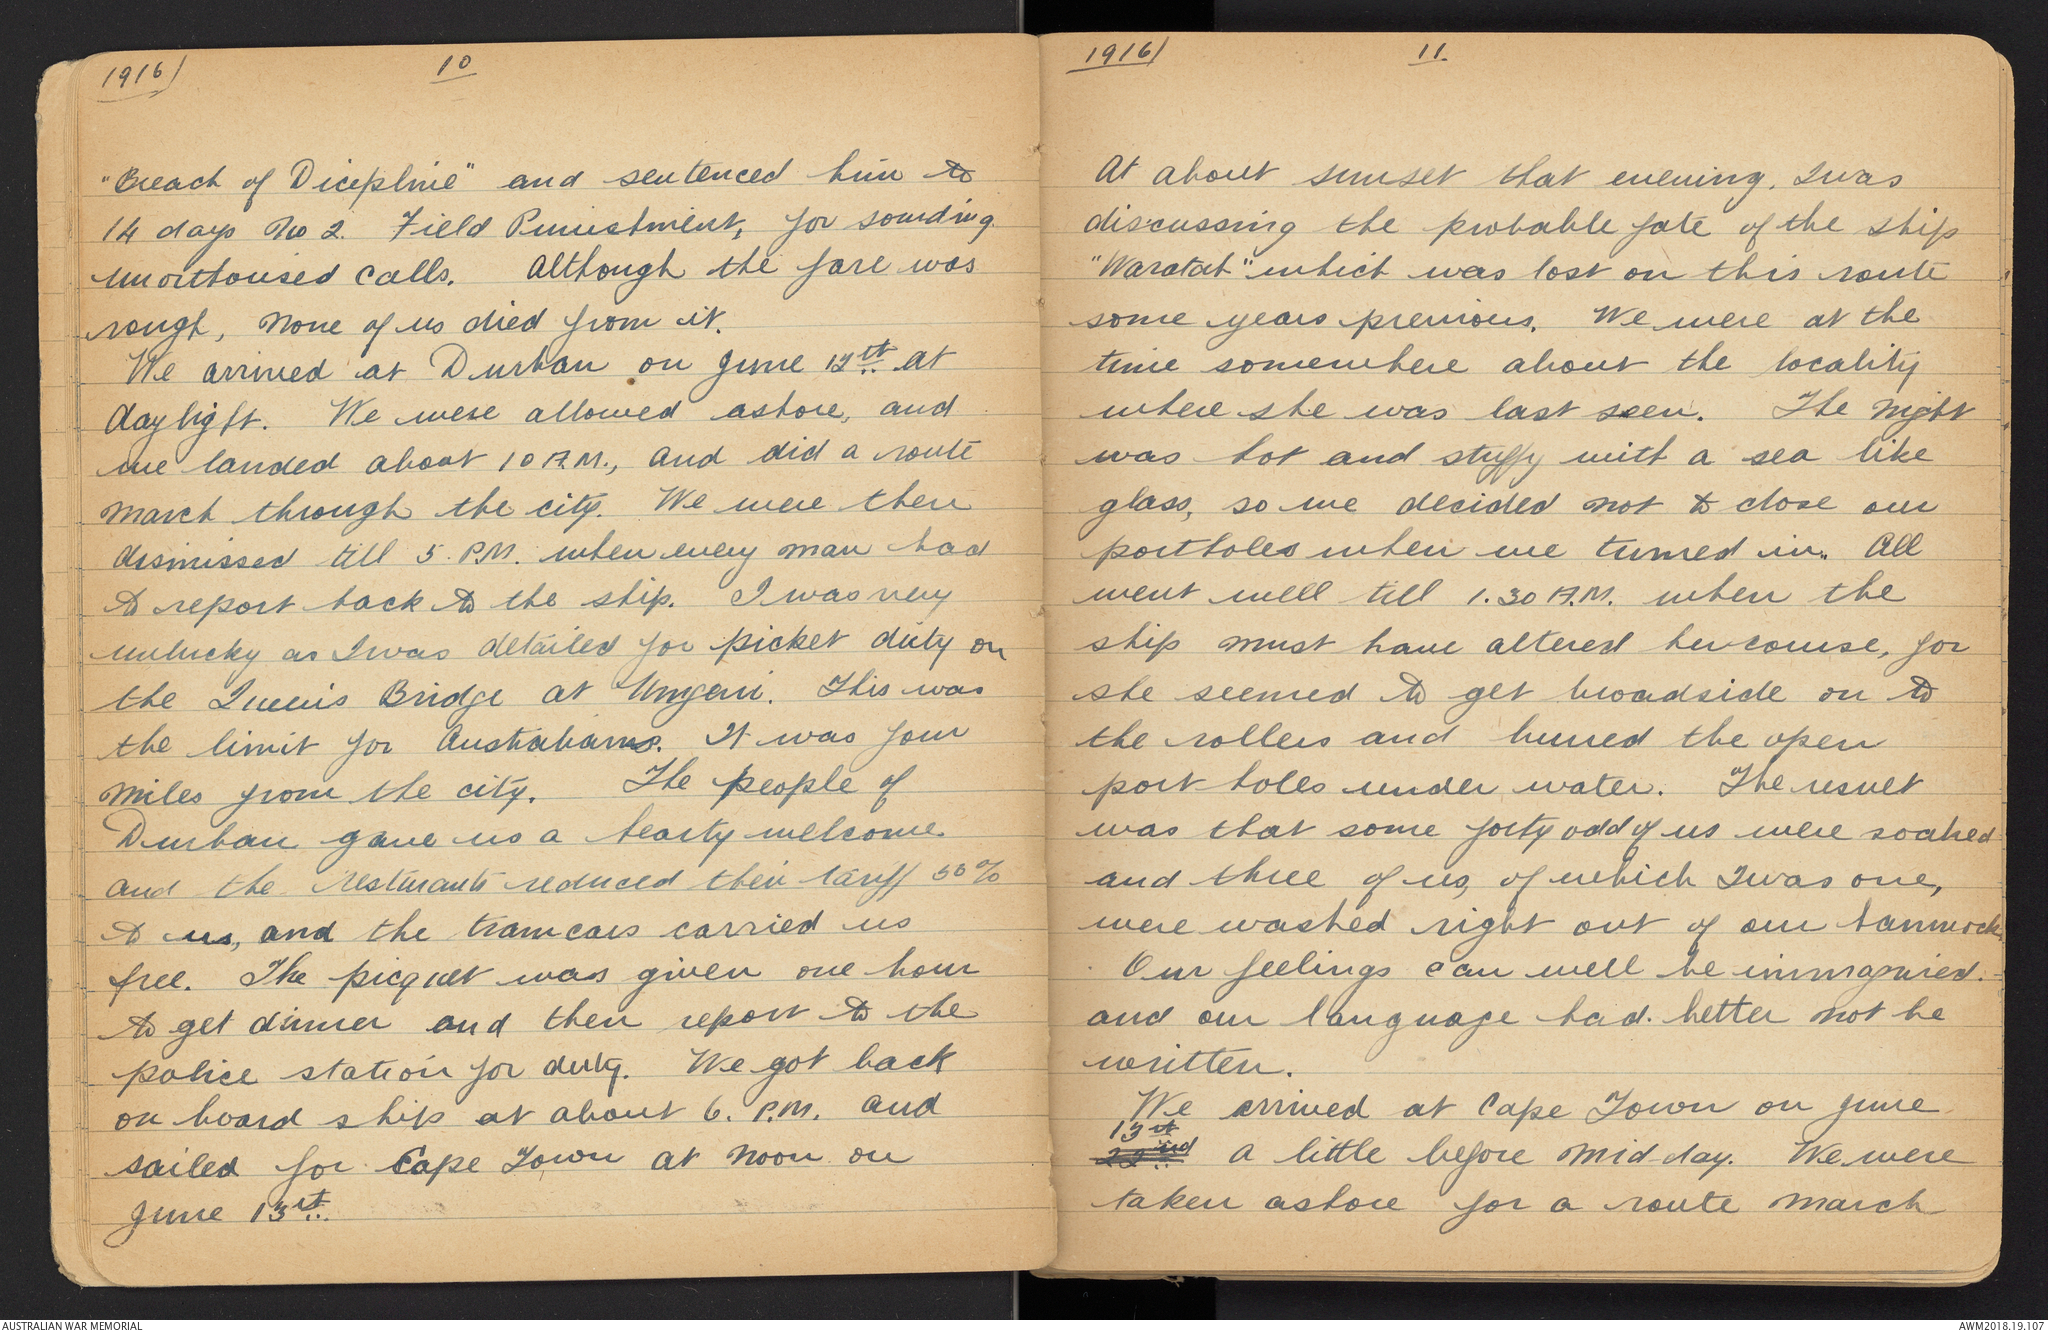 1916/ 10
"Breach of Dicipline" and sentenced him to
14 days No 2. Field Punishment, for sounding
unorthorised calls. Although the fare was
rough, none of us died from it.
We arrived at Durban on June 12st at
daylight. We were allowed ashore, and
we landed about 10 A.M., and did a route
march through the city. We were then
dismissed till 5. P.M. when every man had
to report back to the ship. I was very
unlucky as I was detailed for picket duty on
the Queens Bridge at Umgeni. This was
the limit for Australians. It was four
miles from the city. The people of
Durban gave us a hearty welcome
and the resturants reduced their tariff 50%
to us, and the tramcars carried us
free. The picquet was given one hour
to get dinner and then report to the
police station for duty. We got back
on board ship at about 6. P.M. and
sailed for Cape Town at noon on
June 13st.
1916/ 11.
At about sunset that evening, I was
discussing the probable fate of the ship
"Waratah" which was lost on this route
some years previous. We were at the
time somewhere about the locality
where she was last seen. The night
was hot and stuffy with a sea like
glass, so we decided not to close our
portholes when we turned in. All
went well till 1.30 A.M. when the
ship must have altered her course, for
she seemed to get broadside on to
the rollers and burred the open
port holes under water. The result
was that some forty odd of us were soaked
and three of us, of which I was one,
were washed right out of our hammocks.
Our feelings can well be immagnied.
and our language had. better not be
written.
We arrived at Cape Town on June
13st
22nd a little before mid-day. We were
taken ashore for a route march
AUSTRALIAN WAR MEMORIAL
AWM2018.19.107